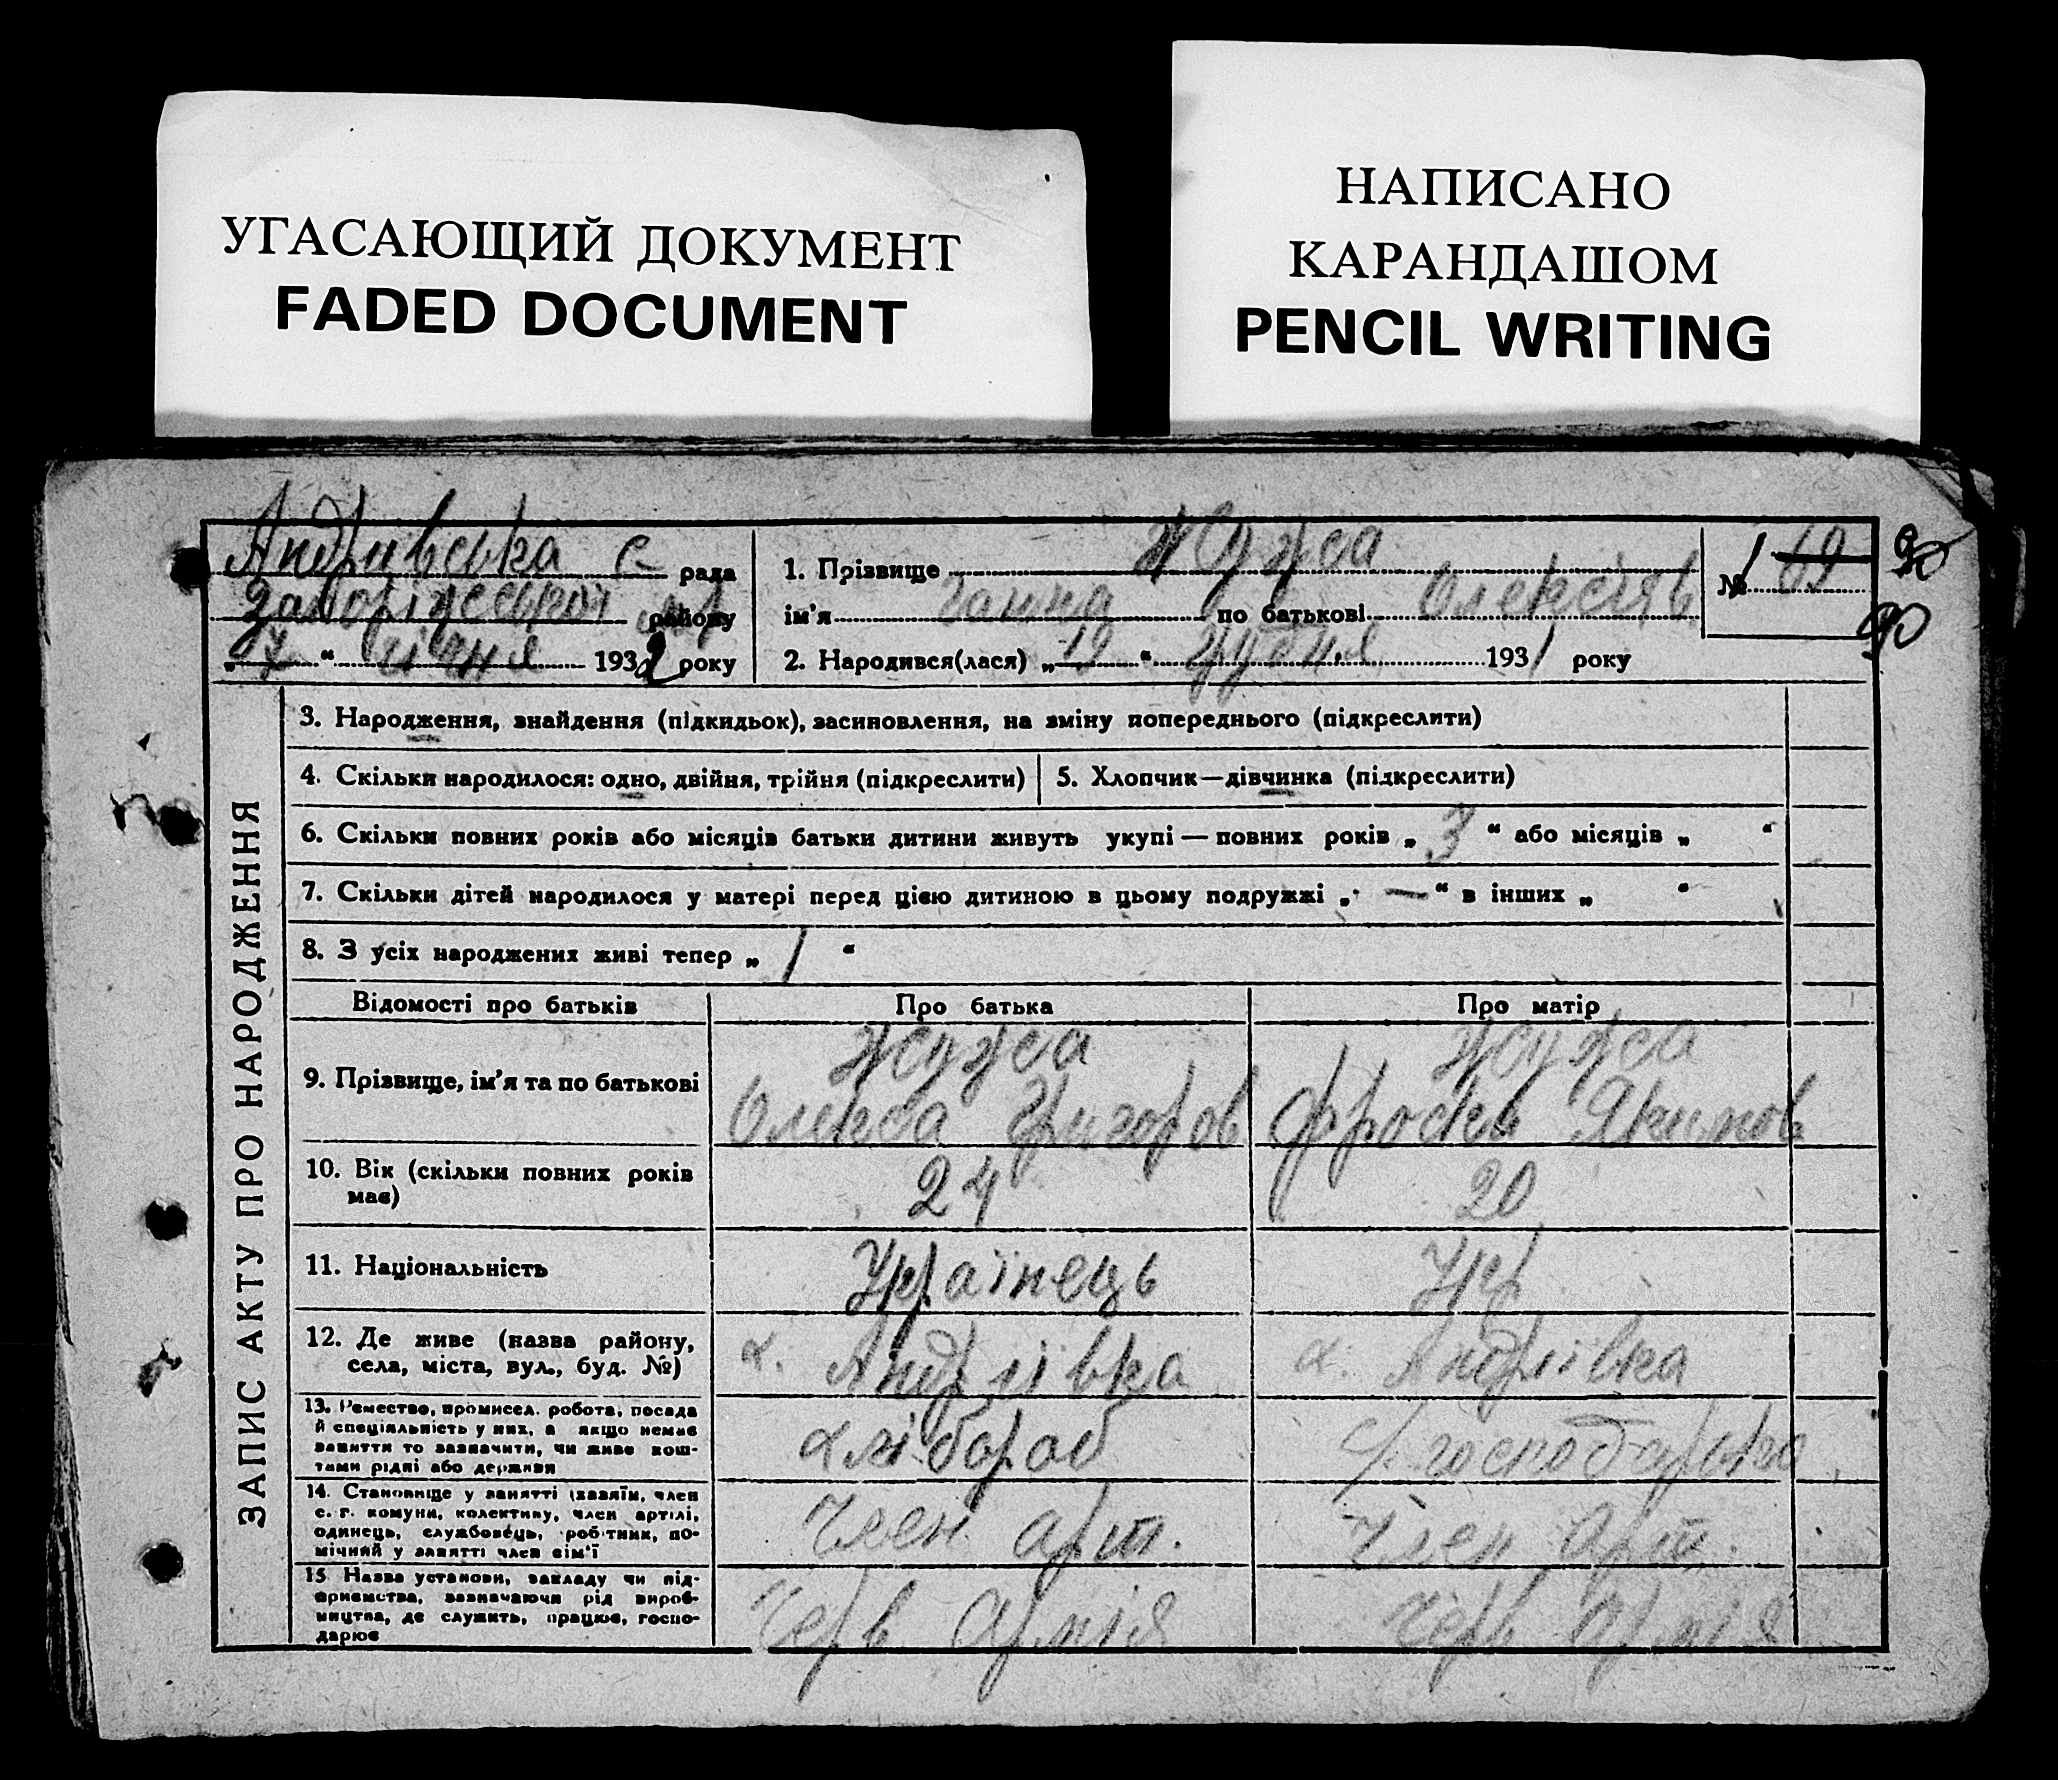 УГАСАЮЩИЙ ДОКУМЕНТ
FADED DOCUMENT
НАПИСАНО
КАРАНДАШОМ
PENCIL WRITING
Андріївська с рада
Запоріжської району
„7“ січня 1932 року
1. Прізвище Жужа
ім’я Ганна по батькові Олексіяв
2. Народився(лася) „19“ грудня 1931 року
№ 1 69
90
90
ЗАПИС АКТУ ПРО НАРОДЖЕННЯ
3. Народження, знайдення (підкидьок), засиновлення, на зміну попереднього (підкреслити)
4. Скільки народилося: одно, двійня, трійня (підкреслити)
5. Хлопчик—дівчинка (підкреслити)
6. Скільки повних років або місяців батьки дитини живуть укупі — повних років „3“ або місяців „ “
7. Скільки дітей народилося у матері перед цією дитиною в цьому подружжі „—“ в інших „ “
8. З усіх народжених живі тепер „1“
Відомості про батьків
Про батька
Про матір
9. Прізвище, ім’я та по батькові
Жужа
Олекса Григоров
Жужа
Фроська Якимов
10. Вік (скільки повних років
має)
24
20
11. Національність
Українець
Укр
12. Де живе (назва району,
села, міста, вул., буд. №)
х. Андріївка
х. Андріївка
13. Ремество, промисел, робота, посада
й спеціяльність у них, а якщо немає
заняття то зазначити, чи живе кош-
тами рідні або держави
хлібороб
господарка
14. Становище у занятті (хазяїн, член
с.-г. комуни, колективу, член артілі,
одинець, службовець, робітник, по-
мічний у занятті член сім’ї
член арт.
член арт.
15 Назва установи, закладу чи під-
приємства, зазначаючи рід вироб-
ництва, де служить, працює, госпо-
дарює
Черв Армія
Черв Армія